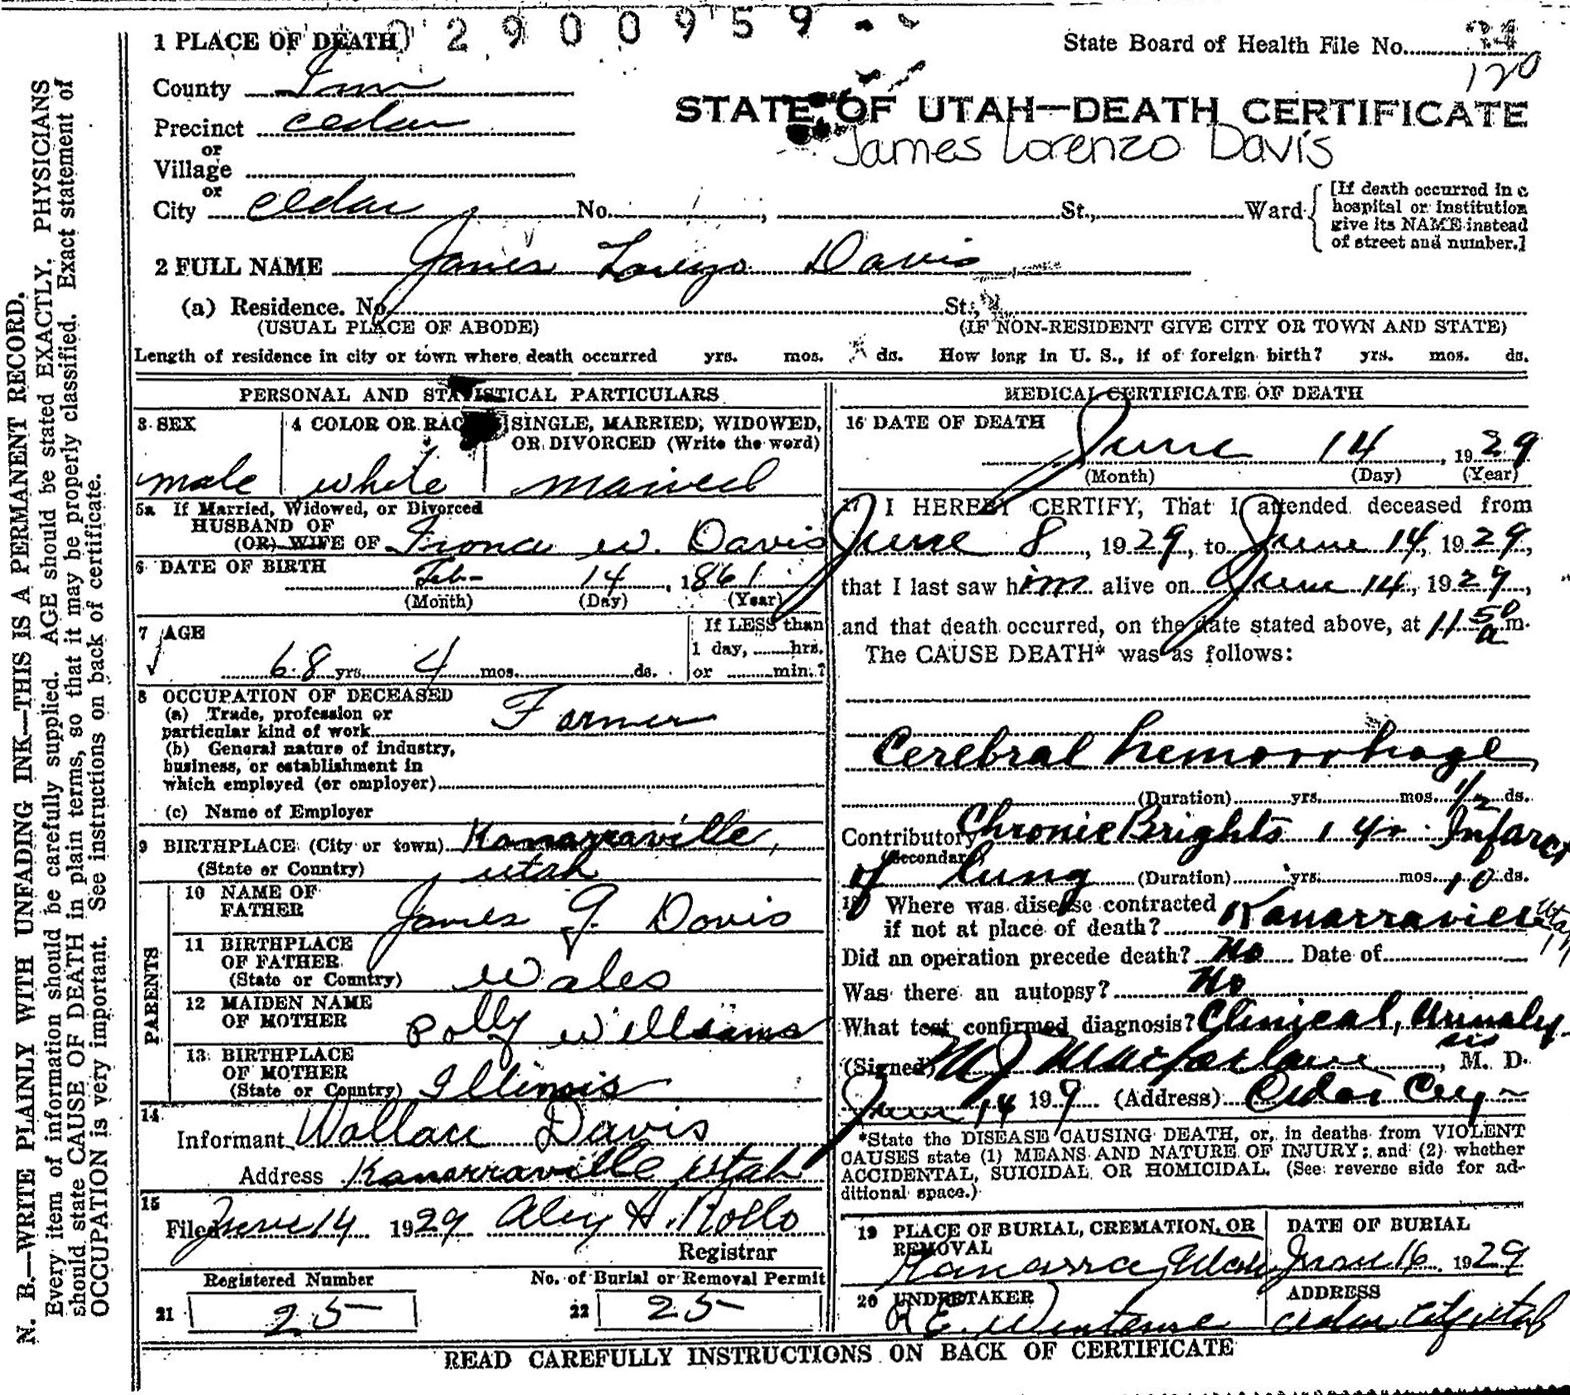 2900959
1 PLACE OF DEATH
State Board of Health File No.
120
County Iron
STATE OF UTAH—DEATH CERTIFICATE
Precinct Cedar
James Lorenzo Davis
or
Village
or
City Cedar No. , St., Ward
[If death occurred in a
hospital or institution
give its NAME instead
of street and number.]
2 FULL NAME James Lorenzo Davis
(a) Residence. No. St.
(USUAL PLACE OF ABODE) (IF NON-RESIDENT GIVE CITY OR TOWN AND STATE)
Length of residence in city or town where death occurred yrs. mos. ds. How long in U. S., if of foreign birth? yrs. mos. ds.
PERSONAL AND STATISTICAL PARTICULARS
3 SEX 4 COLOR OR RACE SINGLE, MARRIED, WIDOWED,
OR DIVORCED (Write the word)
male white married
5a If Married, Widowed, or Divorced
HUSBAND OF
(OR) WIFE OF W. Davis
6 DATE OF BIRTH Feb- 14, 1861
(Month) (Day) (Year)
7 AGE
If LESS than
1 day, hrs.
68 yrs. 4 mos. ds. or min.?
8 OCCUPATION OF DECEASED
(a) Trade, profession or
particular kind of work Farmer
(b) General nature of industry,
business, or establishment in
which employed (or employer)
(c) Name of Employer
9 BIRTHPLACE (City or town) Kanarraville,
(State or Country) Utah
PARENTS
10 NAME OF
FATHER James J. Davis
11 BIRTHPLACE
OF FATHER
(State or Country) Wales
12 MAIDEN NAME
OF MOTHER Polly Williams
13 BIRTHPLACE
OF MOTHER
(State or Country) Illinois
14
Informant Wallace Davis
Address Kanarraville Utah
15
Filed June 14 1929 H. Rollo
Registrar
Registered Number No. of Burial or Removal Permit
21 25 22 25
MEDICAL CERTIFICATE OF DEATH
16 DATE OF DEATH
June 14, 1929
(Month) (Day) (Year)
17 I HEREBY CERTIFY, That I attended deceased from
June 8, 1929, to June 14, 1929,
that I last saw him alive on June 14, 1929,
and that death occurred, on the date stated above, at 11 50 a m.
The CAUSE DEATH* was as follows:
Cerebral hemorrhage
(Duration) yrs. mos. 1/2 ds.
Contributory Chronic Brights 1 yr. Infarct
(Secondary)
of lung (Duration) yrs. mos. 10 ds.
18 Where was disease contracted
if not at place of death? Kanarraville Utah
Did an operation precede death? No Date of
Was there an autopsy? No
What test confirmed diagnosis? Clinical, Urinaly
sis
(Signed) M J Macfarlane, M. D.
June 14 1929 (Address) Cedar City
*State the DISEASE CAUSING DEATH, or, in deaths from VIOLENT
CAUSES state (1) MEANS AND NATURE OF INJURY; and (2) whether
ACCIDENTAL, SUICIDAL OR HOMICIDAL. (See reverse side for ad-
ditional space.)
19 PLACE OF BURIAL, CREMATION, OR
REMOVAL
Kanarra, Utah
DATE OF BURIAL
June 16 1929
20 UNDERTAKER
ADDRESS
Cedar City Utah
READ CAREFULLY INSTRUCTIONS ON BACK OF CERTIFICATE
N. B.—WRITE PLAINLY WITH UNFADING INK—THIS IS A PERMANENT RECORD.
Every item of information should be carefully supplied. AGE should be stated EXACTLY. PHYSICIANS
should state CAUSE OF DEATH in plain terms, so that it may be properly classified. Exact statement of
OCCUPATION is very important. See instructions on back of certificate.